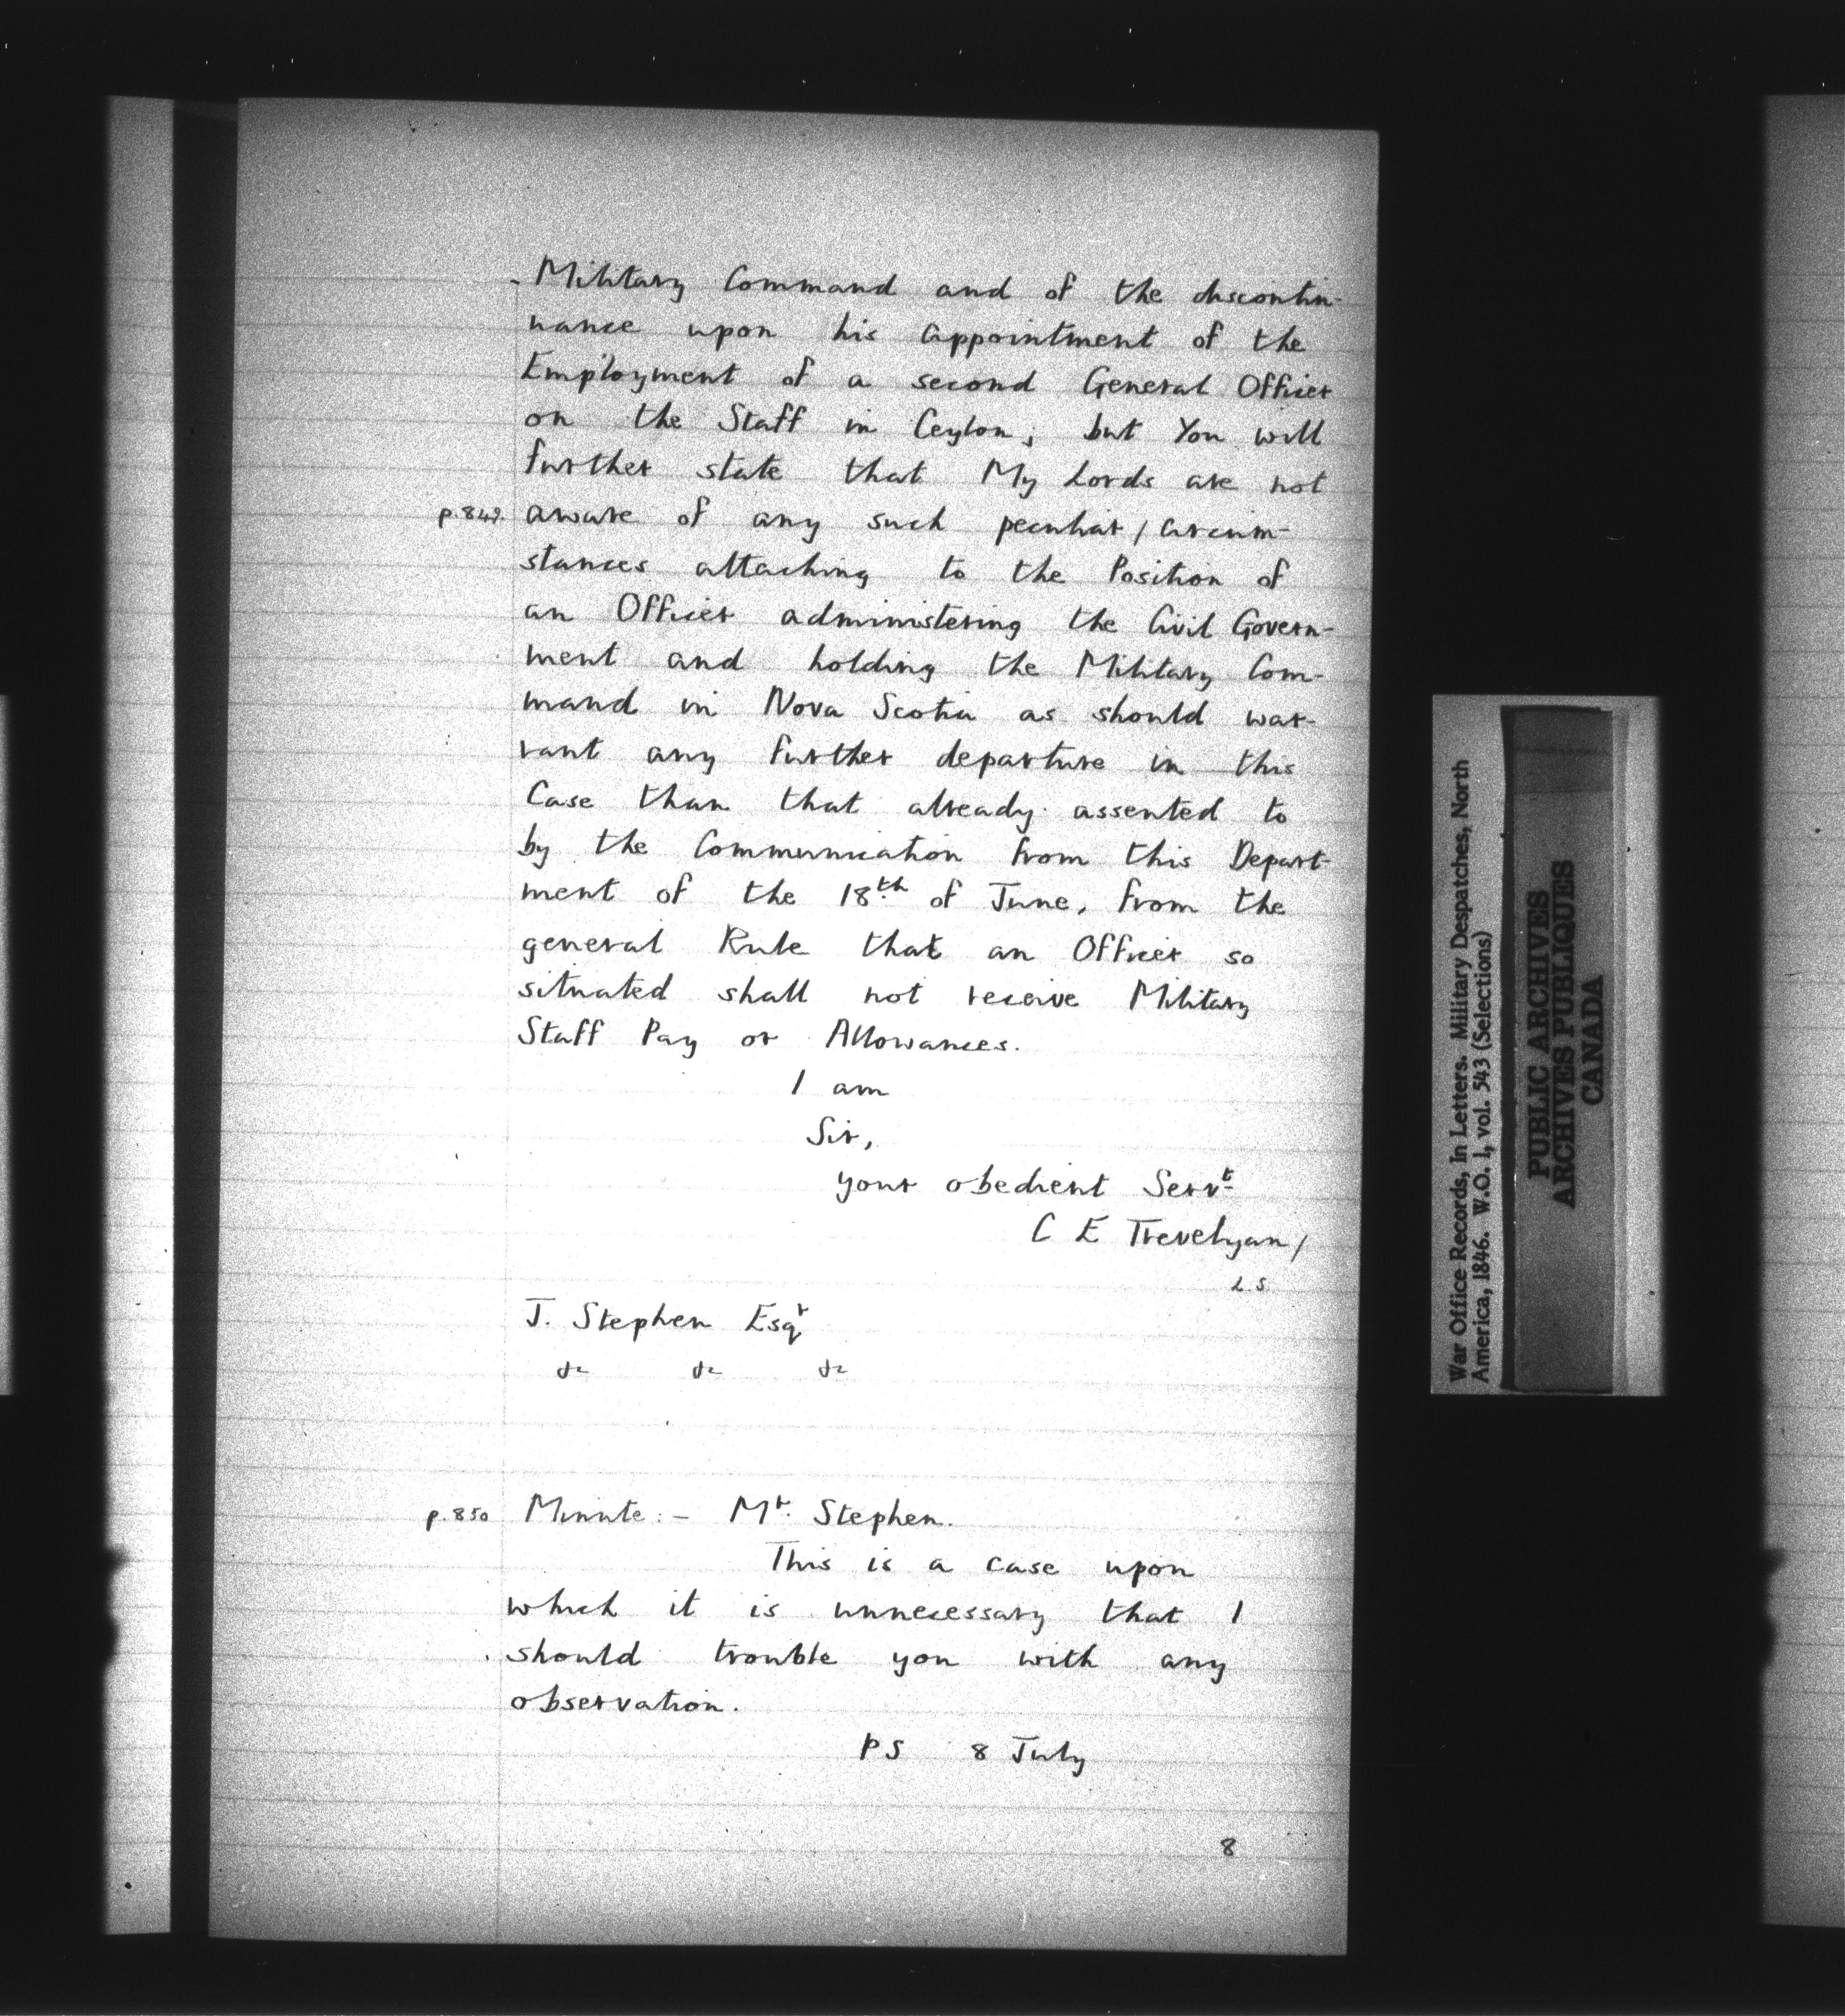 Military Command and of the discontin-
nance upon his appointment of the
Employment of a second General Officer
on the Staff in Ceylon; but You will
further state that My Lords are not
p.849. aware of any such peculiar / circum-
stances attaching to the Position of
an Officer administering the Civil Govern-
ment and holding the Military Com-
mand in Nova Scotia as should war-
rant any further departure in this
Case than that already assented to
by the Communication from this Depart-
ment of the 18th of June, from the
general Rule that an Officer so
situated shall not receive Military
Staff Pay or Allowances.
I am
Sir,
your obedient Servt
C E Trevelyan /
L S
J. Stephen Esqr
&c &c &c
p.850 Minute: - Mr. Stephen.
This is a case upon
which it is unnecessary that I
should trouble you with any
observation.
PS 8 July
8
War Office Records, In Letters. Military Despatches, North
America, 1846. W.O. 1, vol. 543 (Selections)
PUBLIC ARCHIVES
ARCHIVES PUBLIQUES
CANADA